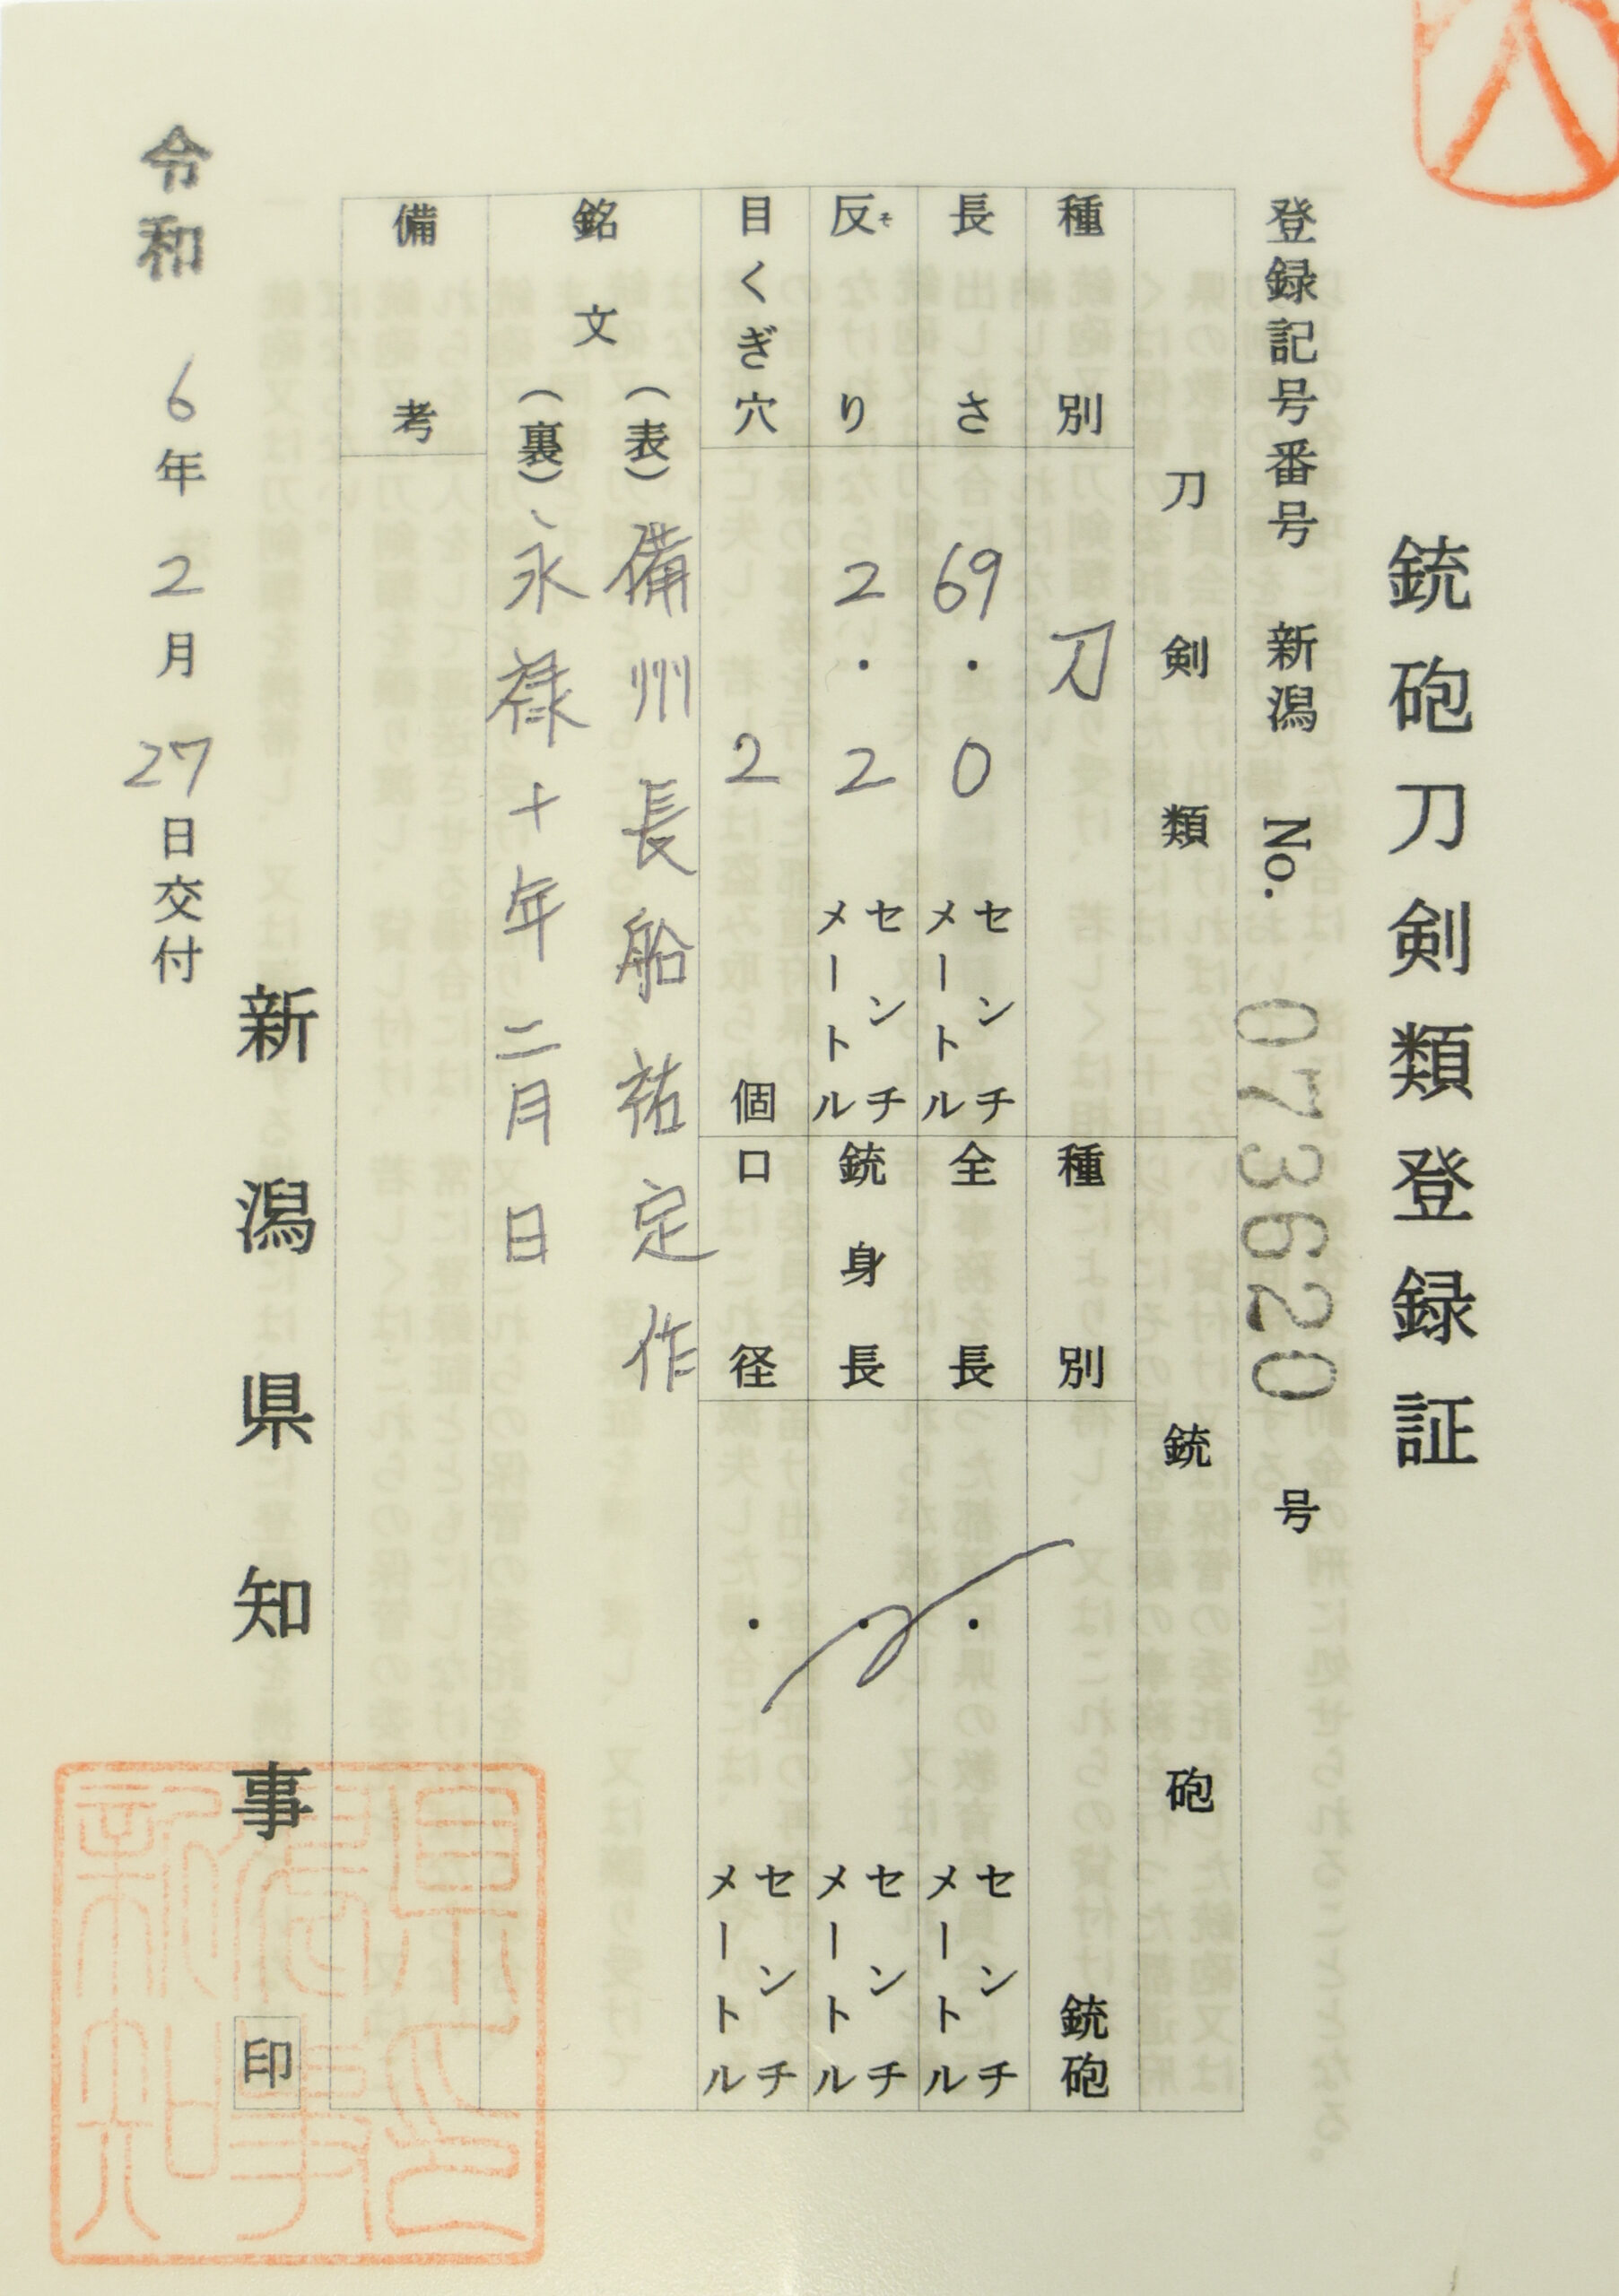 銃砲刀剣類登録証
登録記号番号 新潟 No. 073620 号
刀剣類
種別 刀
長さ 69.0 センチメートル
反り 2.2 センチメートル
そ
目くぎ穴 2 個
銃砲
種別 銃砲
全長 ・ センチメートル
銃身長 ・ センチメートル
口径 ・ センチメートル
銘文
(表) 備州長船祐定作
(裏) 永禄十年二月日
備考
新潟県知事 印
令和6年2月27日交付